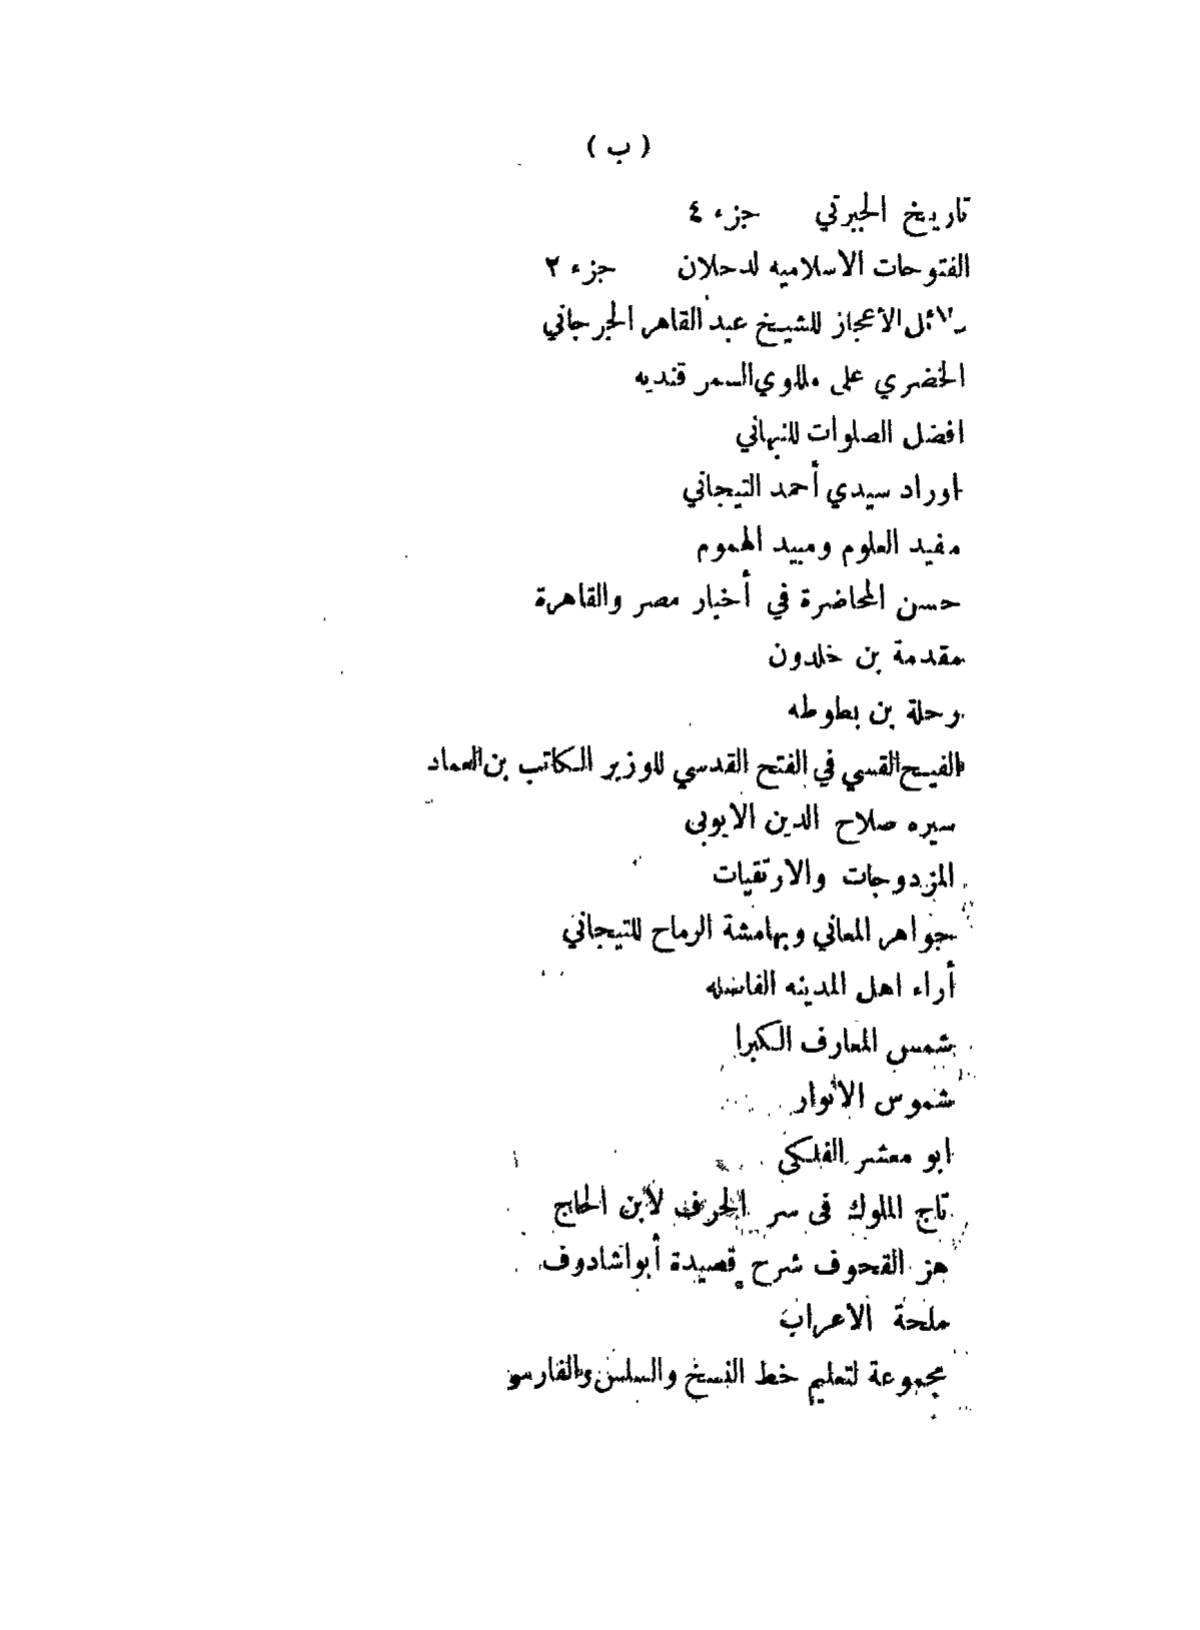 ( ب )
تاريخ الجبرتي جزء ٤
الفتوحات الاسلاميه لدحلان جزء ٢
دلائل الأعجاز للشيخ عبد القاهر الجرجاني
الخضري على ملاوي السمر قنديه
افضل الصلوات للنبهاني
اوراد سيدي أحمد التيجاني
مفيد العلوم ومبيد الهموم
حسن المحاضرة في أخبار مصر والقاهرة
مقدمة بن خلدون
رحلة بن بطوطه
الفيح القسي في الفتح القدسي للوزير الكاتب بن العماد
سيره صلاح الدين الايوبى
المزدوجات والارتقيات
جواهر المعاني وبهامشة الرماح للتيجاني
أراء اهل المدينه الفاضله
شمس المعارف الكبرا
شموس الأنوار
ابو معشر الفلكى
تاج الملوك فى سر الحرف لأبن الحاج
هز القحوف شرح قصيدة أبو اشادوف
ملحة الاعراب
مجموعة لتعليم خط النسخ والسلس والفارسى